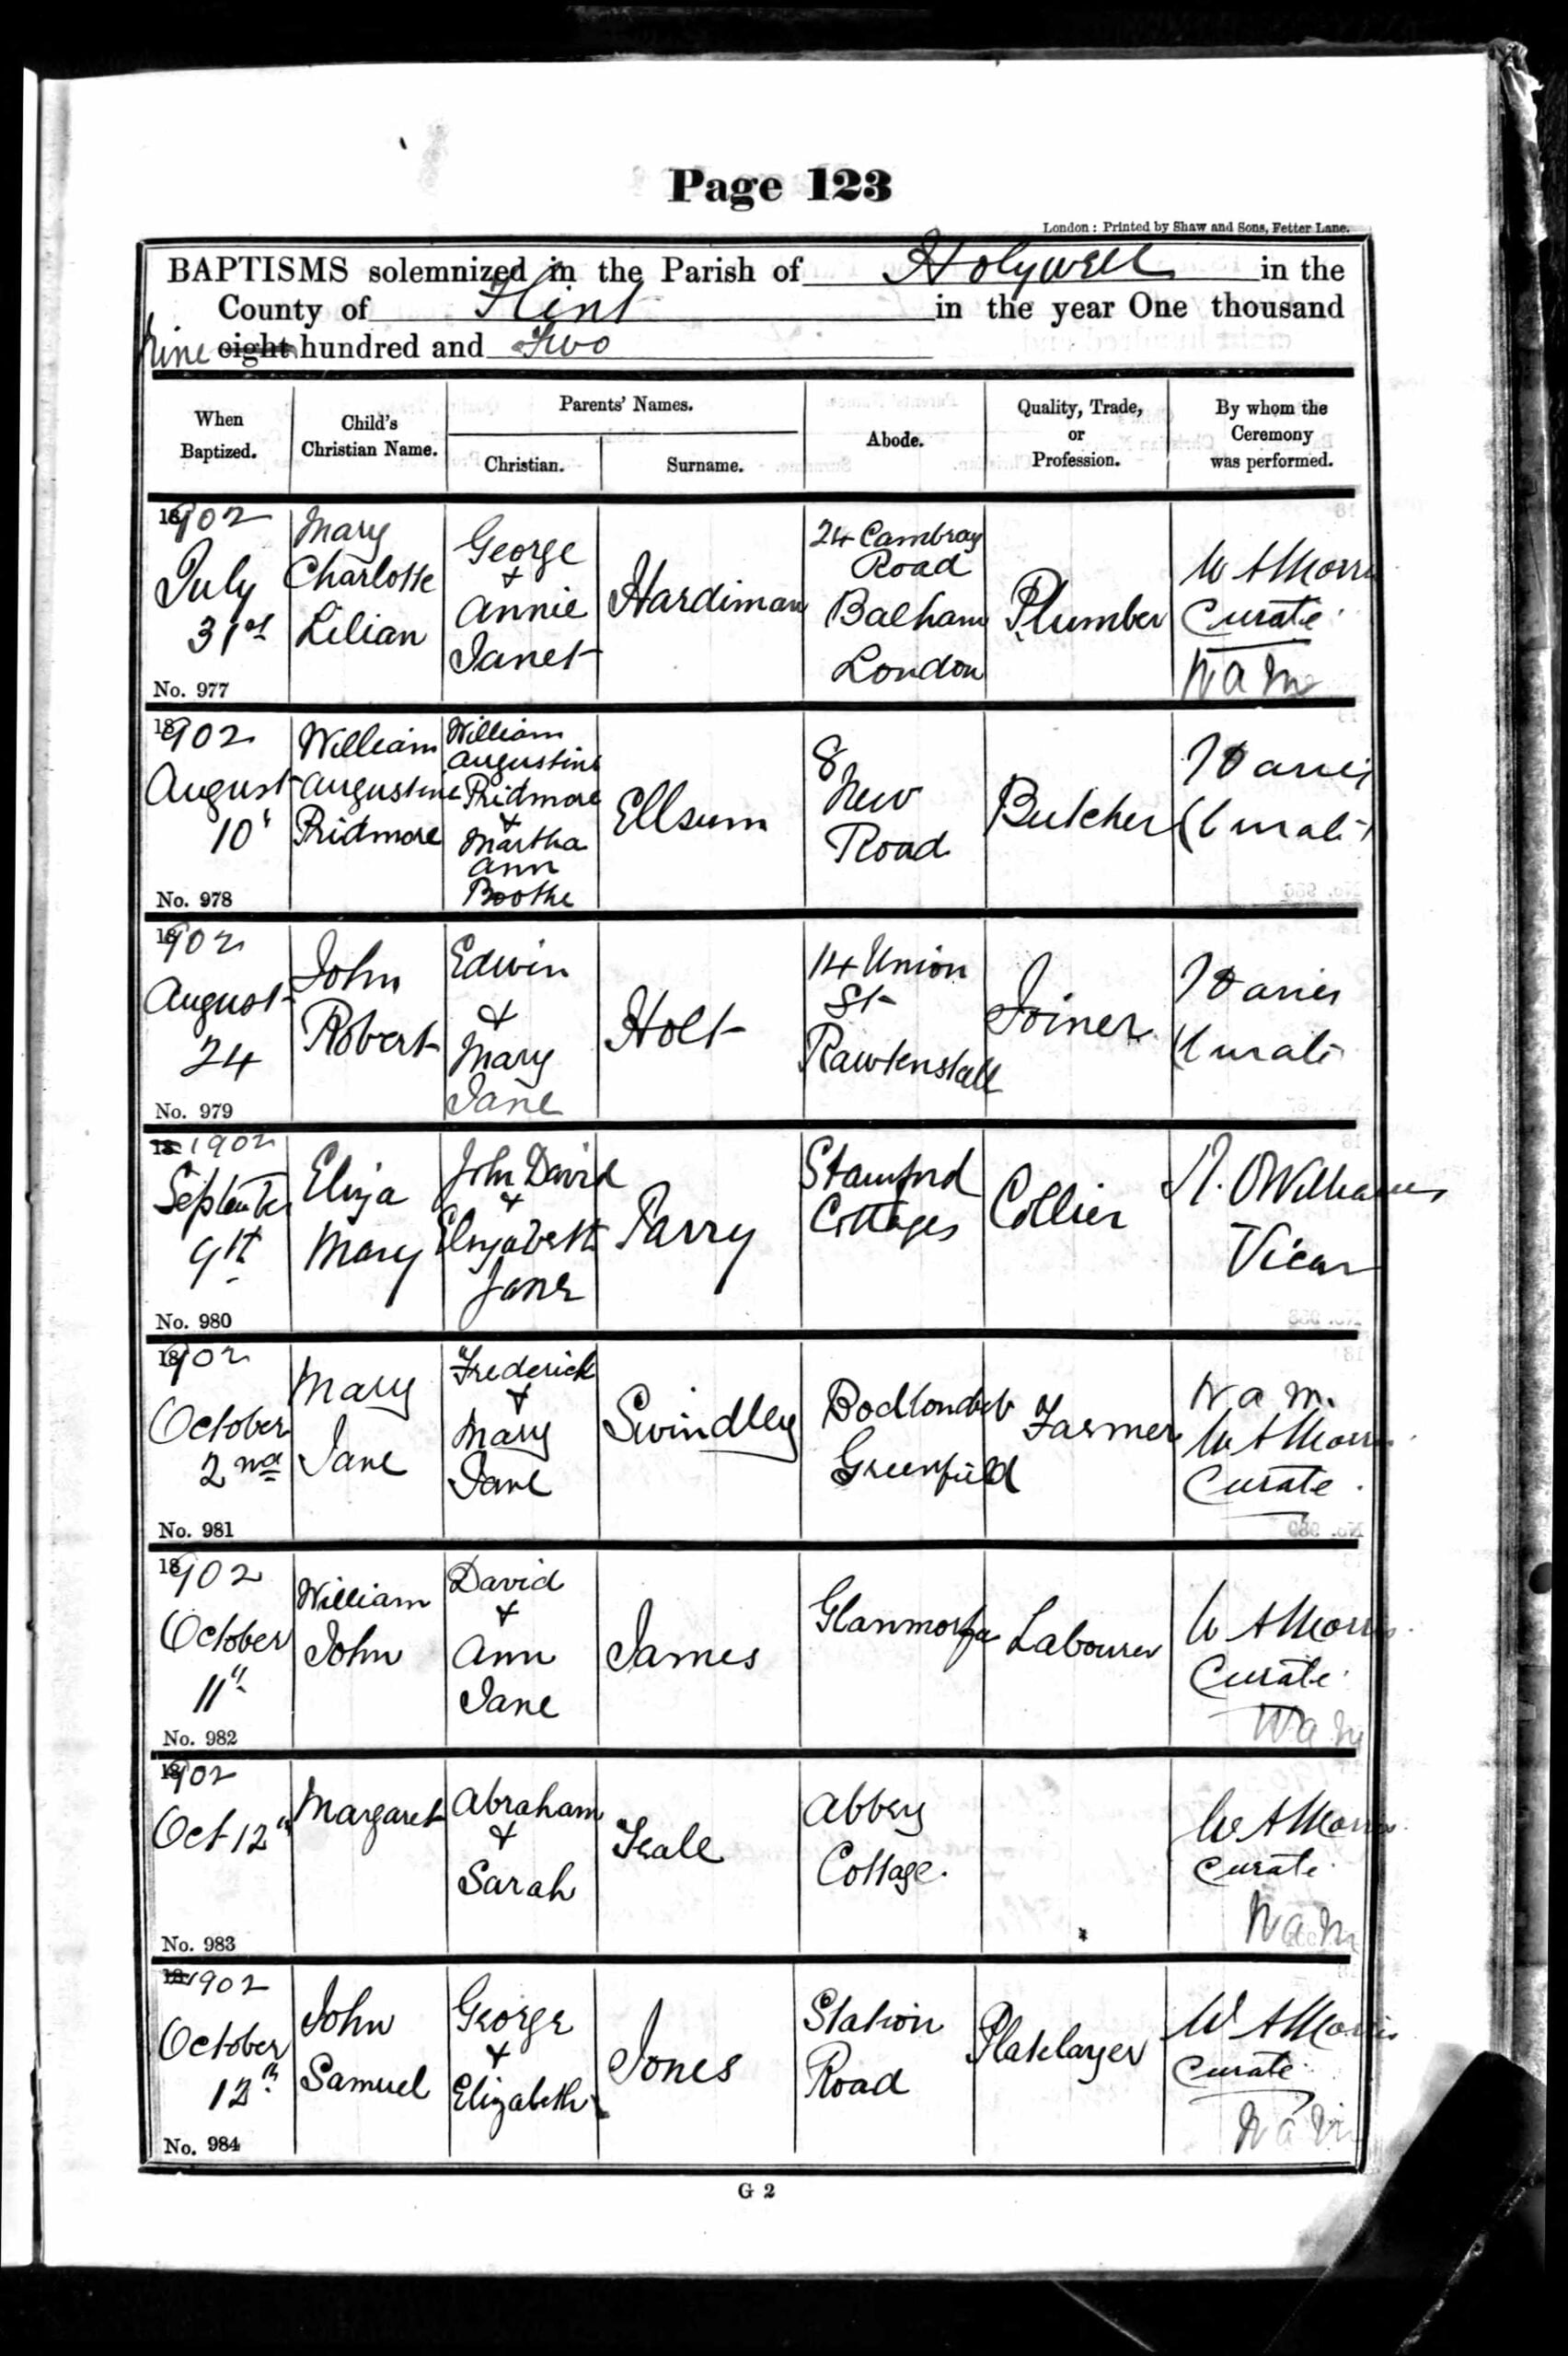 Page 123
London : Printed by Shaw and Sons, Fetter Lane.
BAPTISMS solemnized in the Parish of Holywell in the
County of Flint in the year One thousand
nine eight hundred and Two
When Baptized.
Child's Christian Name.
Parents' Names.
Christian.
Surname.
Abode.
Quality, Trade, or Profession.
By whom the Ceremony was performed.
1902
July
31st
No. 977
Mary
Charlotte
Lilian
George
+
Annie
Janet
Hardiman
24 Cambray
Road
Balham
London
Plumber
W A Morris
Curate
W a m
1902
August
10
No. 978
William
Augustine
Pridmore
William
Augustine
Pridmore
+
Martha
Ann
Boothe
Ellsum
8
New
Road
Butcher
Curate
1902
August
24
No. 979
John
Robert
Edwin
+
Mary
Jane
Holt
14 Union
St
Rawtenstall
Joiner
Curate
18 1902
September
9th
No. 980
Eliza
Mary
John David
+
Elizabeth
Jane
Parry
Stamford
Cottages
Collier
R. O Williams
Vicar
1902
October
2nd
No. 981
Mary
Jane
Frederick
+
Mary
Jane
Swindley
Bodlondeb
Greenfield
Farmer
W a m.
W A Morris
Curate
1902
October
11th
No. 982
William
John
David
+
Ann
Jane
James
Glanmorfa
Labourer
W A Morris
Curate
W a m
1902
Oct 12th
No. 983
Margaret
Abraham
+
Sarah
Teale
Abbey
Cottage.
W A Morris
Curate
W a m
18 1902
October
12th
No. 984
John
Samuel
George
+
Elizabeth
Jones
Station
Road
Platelayer
W A Morris
Curate
W a m
G 2